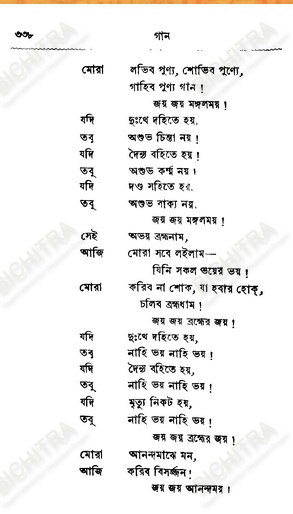 ৩৩৮ গান
মোরা লভিব পুণ্য, শোভিব পুণ্যে,
গাহিব পুণ্য গান !
জয় জয় মঙ্গলময় !
যদি দুঃখে দহিতে হয়,
তবু অশুভ চিন্তা নয় !
যদি দৈন্য বহিতে হয় !
তবু অশুভ কর্ম্ম নয় !
যদি দণ্ড সহিতে হয়,
তবু অশুভ বাক্য নয়,
জয় জয় মঙ্গলময় !
সেই অভয় ব্রহ্মনাম,
আজি মোরা সবে লইলাম—
যিনি সকল ভয়ের ভয় !
মোরা করিব না শোক, যা হবার হোক্,
চলিব ব্রহ্মধাম !
জয় জয় ব্রহ্মের জয় !
যদি দুঃখে দহিতে হয়,
তবু নাহি ভয় নাহি ভয় !
যদি দৈন্য বহিতে হয়,
তবু নাহি ভয় নাহি ভয় !
যদি মৃত্যু নিকট হয়,
তবু নাহি ভয় নাহি ভয় !
জয় জয় ব্রহ্মের জয় !
মোরা আনন্দমাঝে মন,
আজি করিব বিসর্জ্জন !
জয় জয় আনন্দময় !
BICHITRA